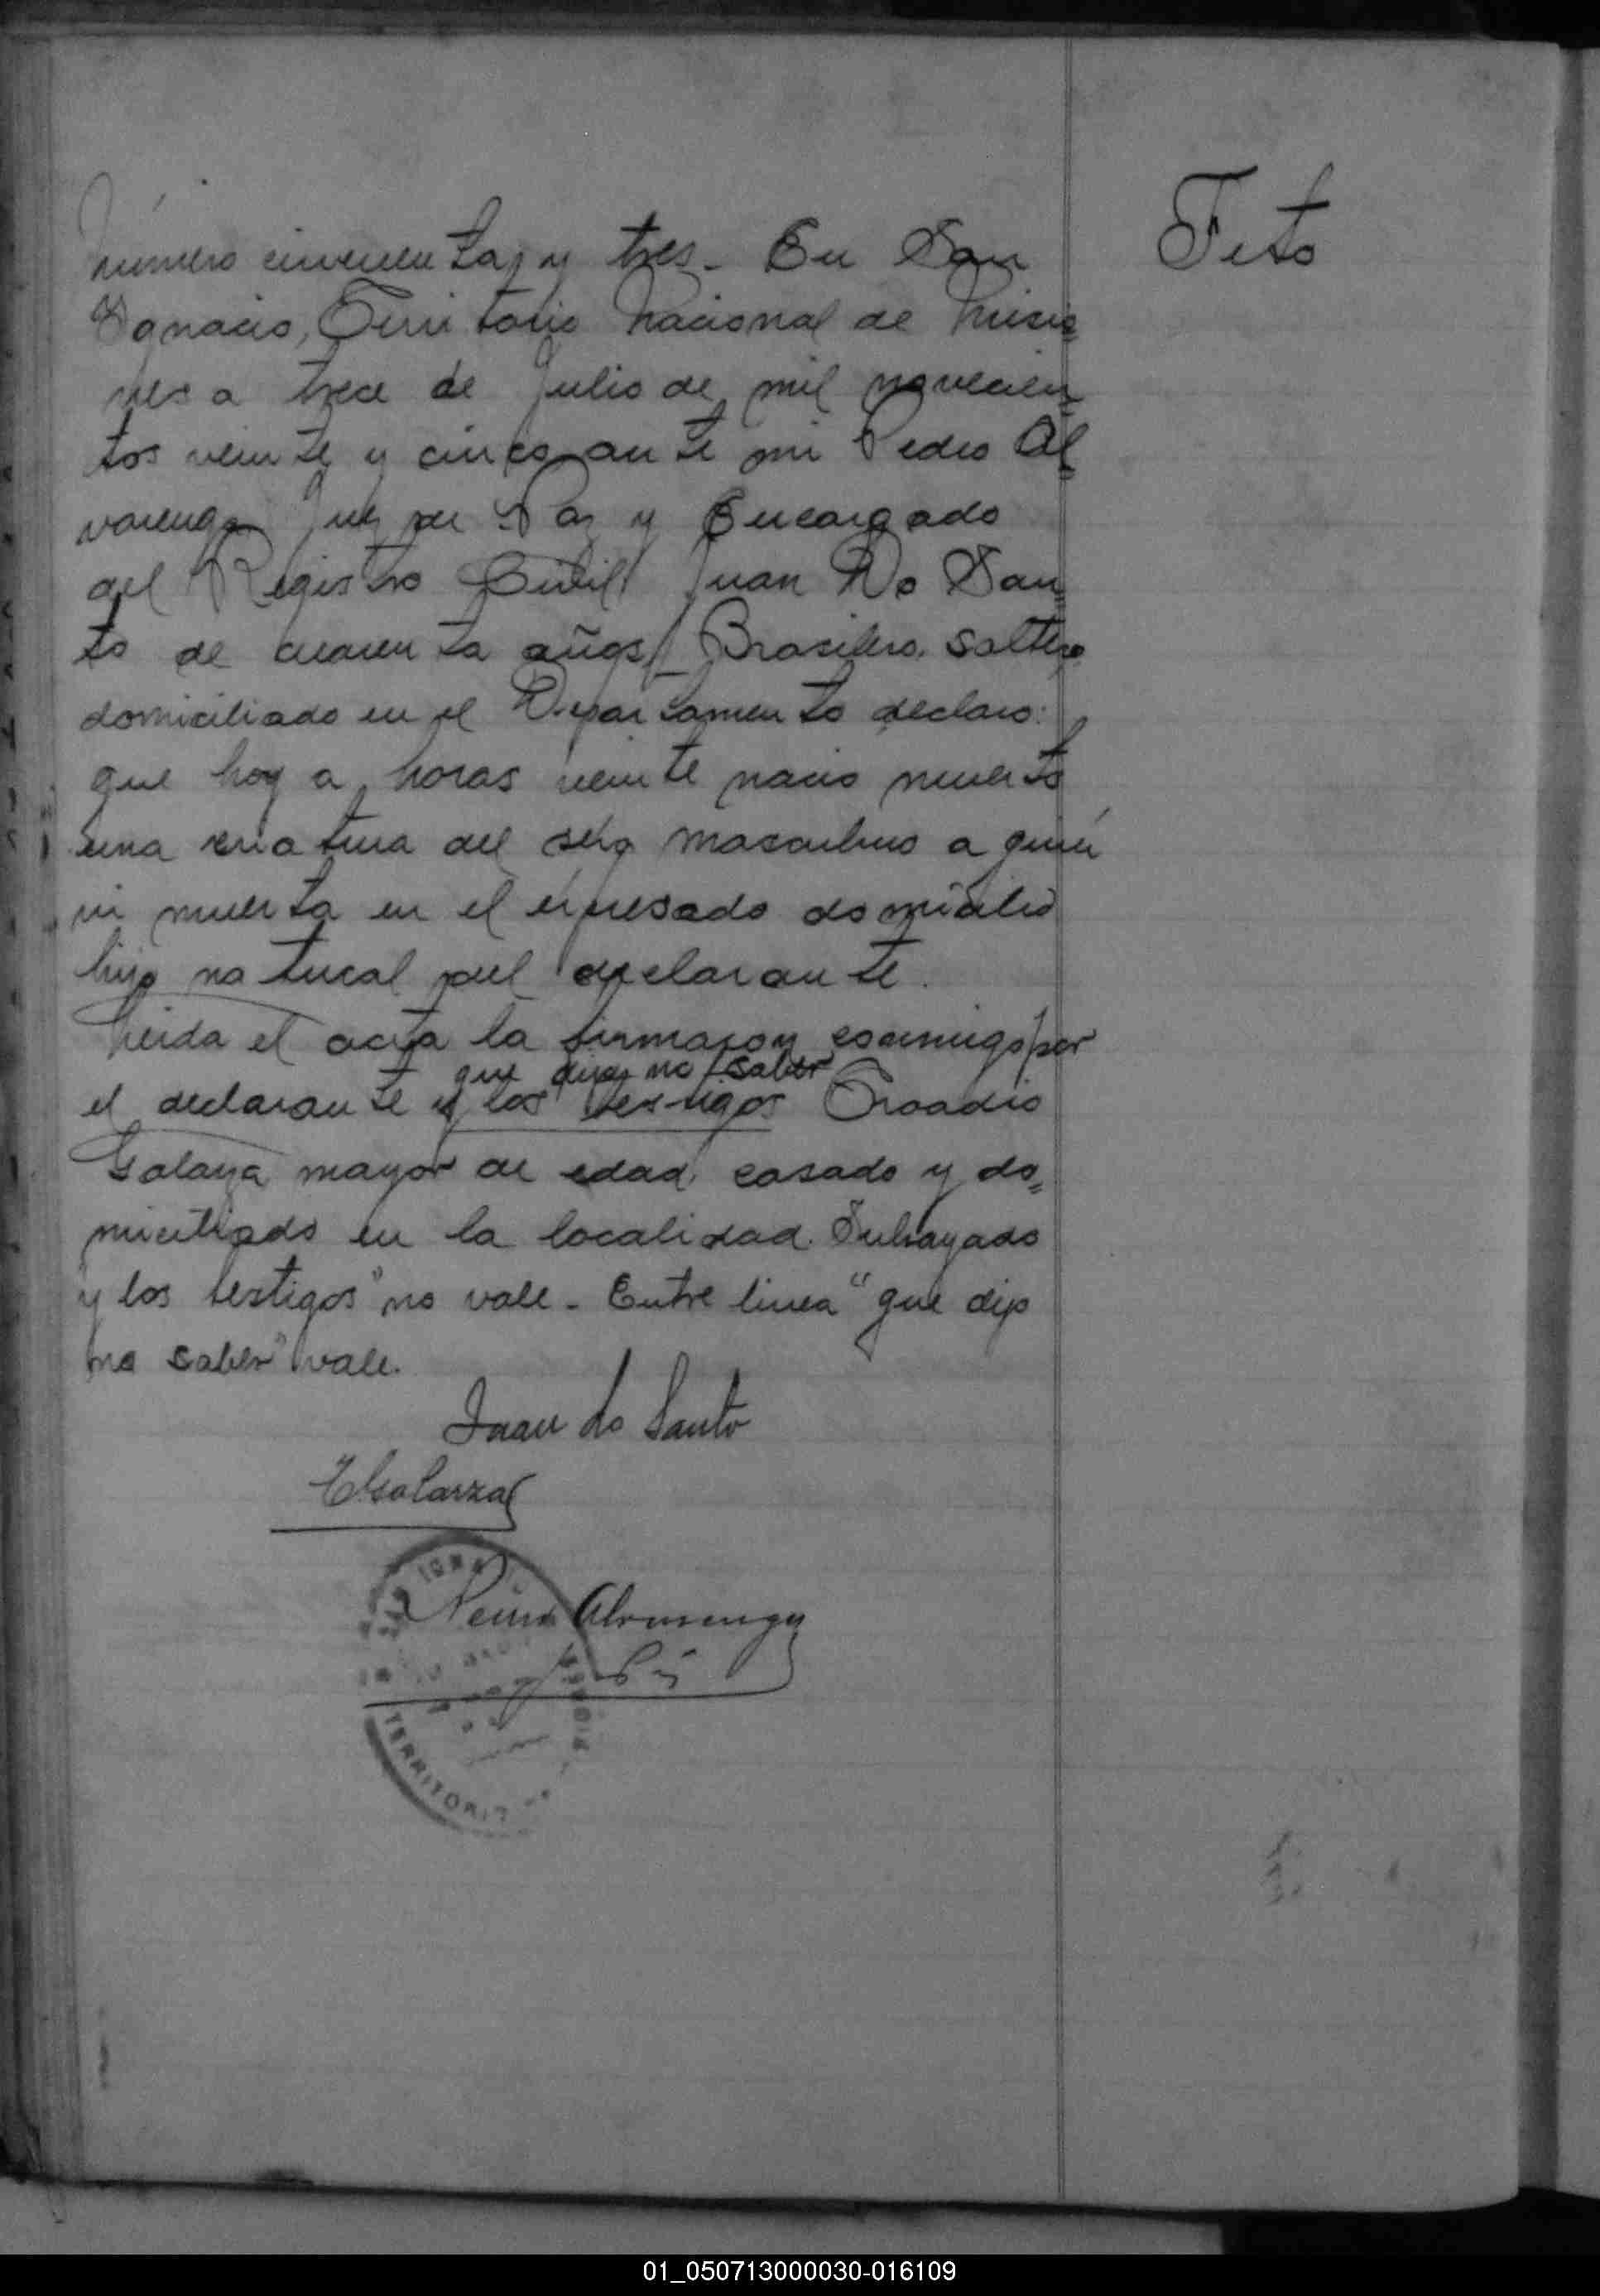 Feto
número cincuenta y tres - En San
Ignacio, Territorio Nacional de Misio=
nes a trece de Julio de mil novecien=
tos veinte y cinco ante mi Pedro Al=
varenga Juez de Paz y Encargado
del Registro Civil Juan Do San=
to de cuarenta años, Brasilero, soltero
domiciliado en el Departamento declaro:
que hoy a horas veinte nacio muerto
una criatura del sexo masculino a quien
vi muerta en el expresado domicilio
hijo natural del declarante.
Leida el acta la firmaron conmigo por
que dijo no saber
el declarante y los testigos
mayor de edad, casado y do=
miciliado en la localidad. Subrayado
y los testigos" no vale - Entre linea "que dijo
no saber" vale.
Juan do Santo
Alvarenga
TERRITORIO
01_050713000030-016109